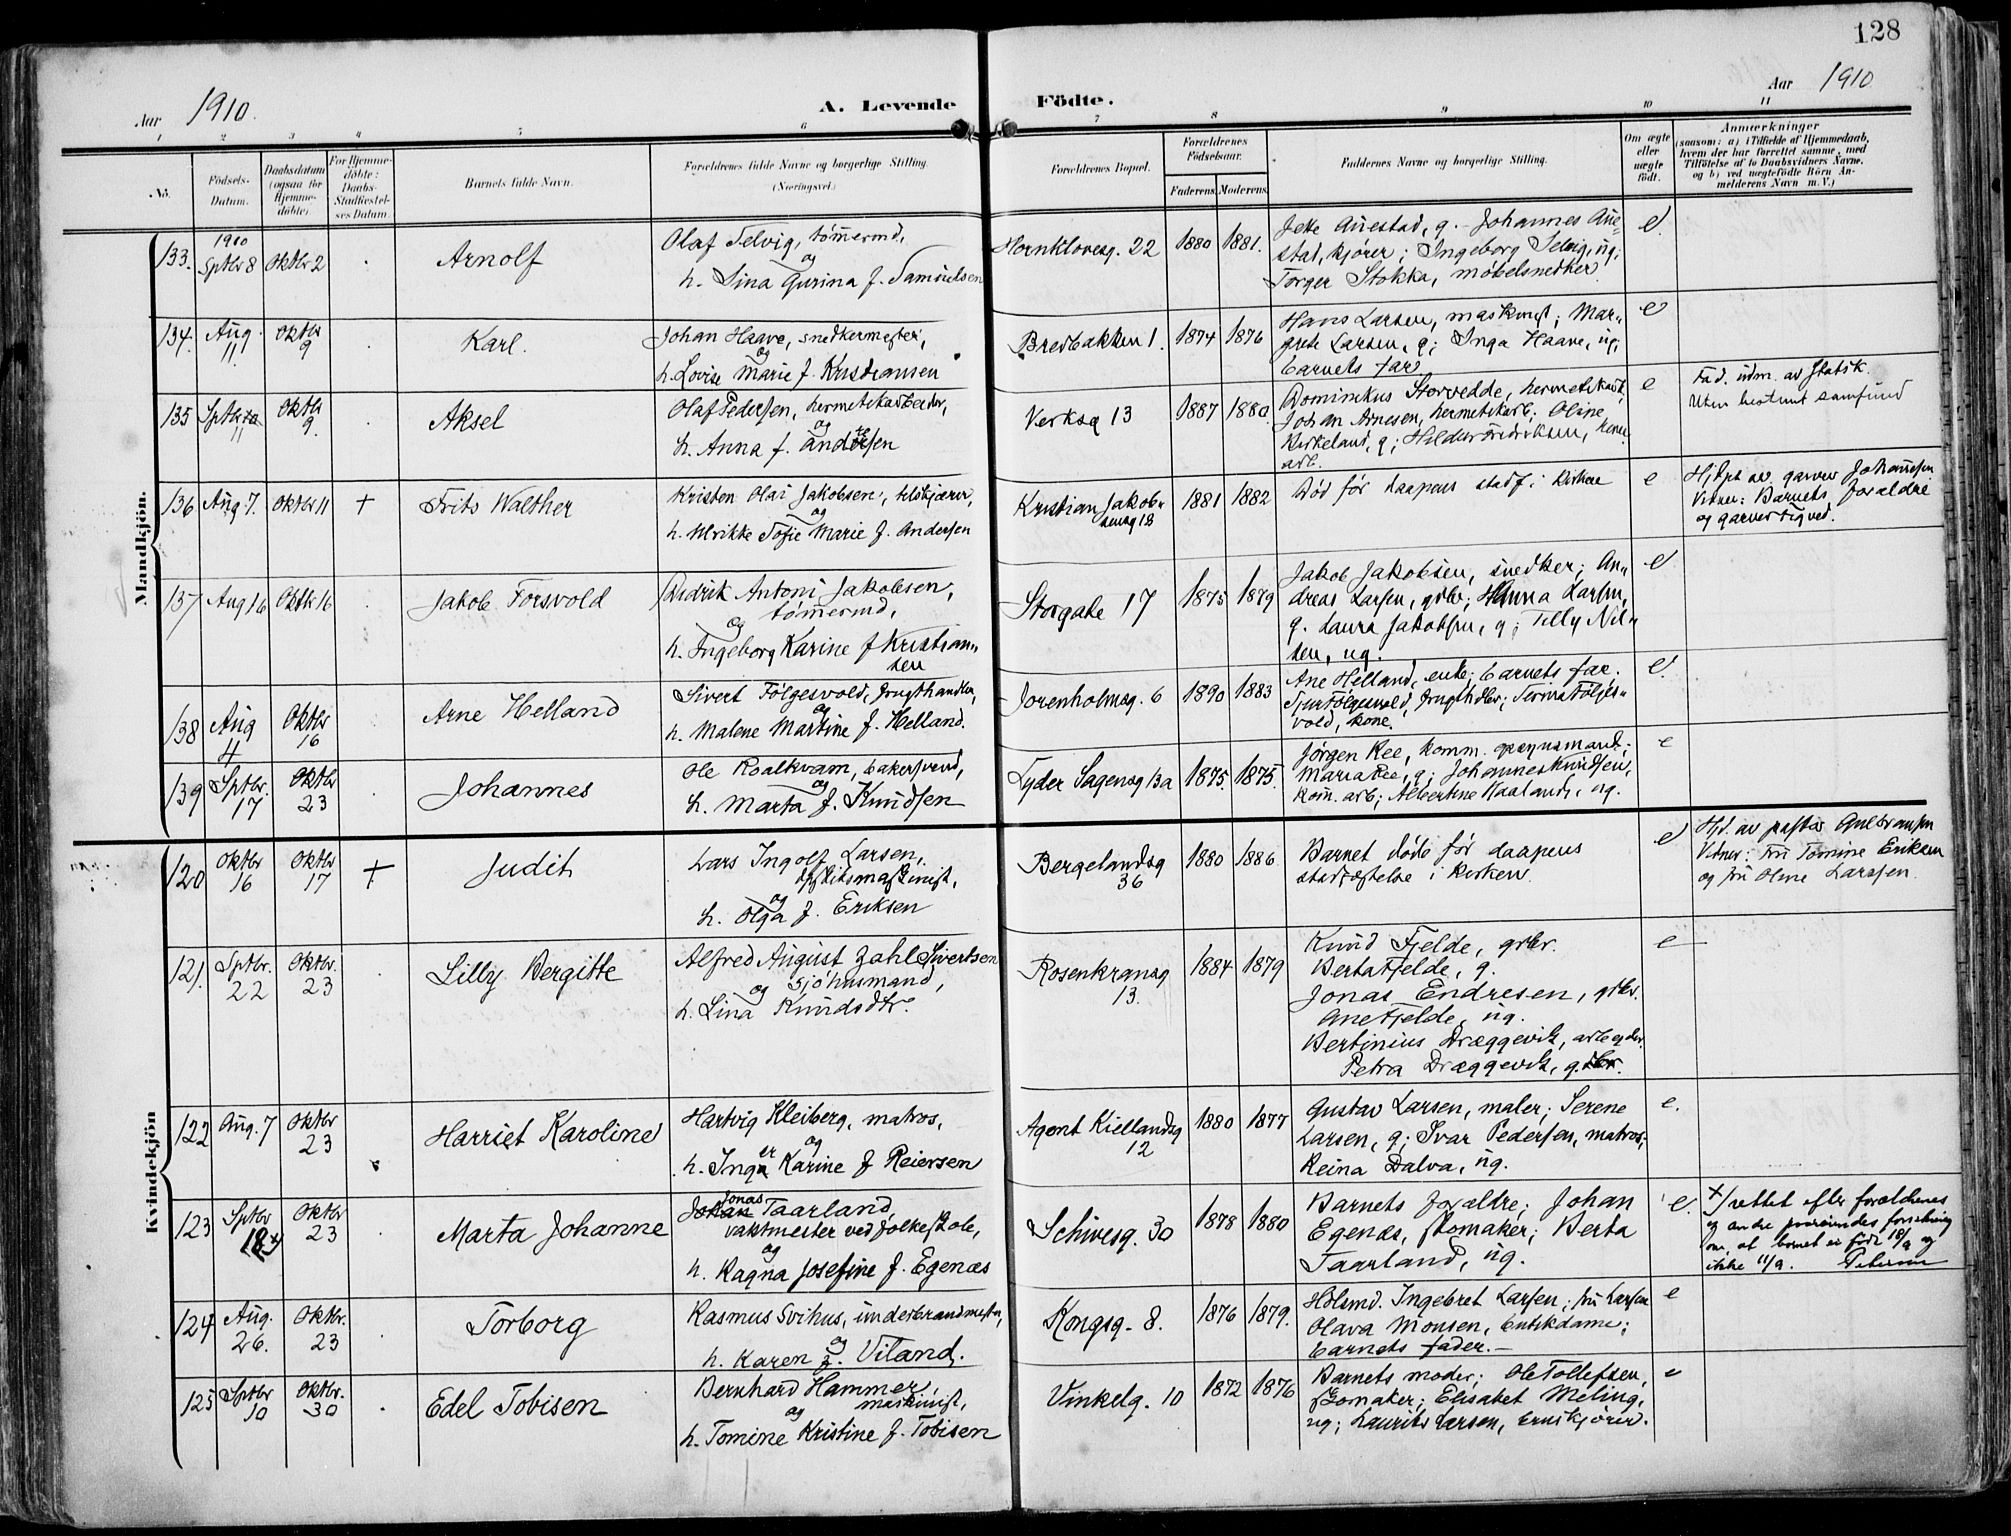 128
Aar 1910.
A. Levende Födte.
Aar 1910
1 2 3 4 5 6 7 8 9 10 11
No.
Födsels-
Datum.
Daabsdatum
(ogsaa for
Hjemme-
döbte)
For Hjemme-
döbte:
Daabs-
Stadfæstel-
ses Datum.
Barnets fulde Navn.
Forældrenes fulde Navne og borgerlige Stilling.
(Næringsvei.)
Forældrenes Bopæl.
Forældrenes
Födselsaar.
Faderens. Moderens.
Faddernes Navne og borgerlige Stilling.
Om ægte
eller
uægte
födt.
Anmærkninger
(saasom: a) i Tilfælde af Hjemmedaab,
hvem der har forrettet samme, med
Tilföielse af to Daabsvidners Navne.
og b) ved uægtefödte Börn An-
melderens Navn m. V.)
Mandkjön.
133. 1910 Sptbr 8 Oktbr 2 Arnolf
Olaf Selvig, tømmermd,
og
h. Lina Gurina f. Samuelsen
Hornklovesg. 22 1880 1881.
Jette Auestad, g. Johannes Aue-
stad, kjører; Ingeborg Selvig, ug;
Torger Stokka, møbelsnedker
e.
134. Aug 11 Oktbr 9 Karl.
Johan Haave, snedkermester,
og
h. Lovise Marie f. Kristiansen
Bredbakken 1. 1874 1876
Hans Larsen, maskinist; Mar-
grete Larsen, g; Inga Haave, ug;
barnets far
e
135 Sptbr 11 Oktbr 9. Aksel
Olaf Pedersen, hermetikarbeider,
og
h. Anna f. Andersen
Verksg 13 1887 1880.
Dominikus Storvedde, hermetikarb,
Johan Arnesen, hermetikarb; Oline
Birkeland, g; Hildur Fredriksen, herm.
arb.
e
Fad. udm. av Statsk.
Uten bestemt samfund
136 Aug 7. Oktbr 11 + Frits Walther
Kristen Olai Jakobsen,
og
h. Ulrikke Sofie Marie f. Andersen
Kristian Jakob-
sensg 18 1881 1882
Død før daapens stadf i kirken
e
Hjdpt av garver Johannesen
Vidner: Barnets forældre
og garver Tigved.
137 Aug 16 Oktbr 16 Jakob Forsvold
Didrik Antoni Jakobsen,
tømmermd,
og
h. Ingeborg Karine f Kristian-
sen
Storgate 17 1875 1879
Jakob Jakobsen, snedker; An-
dreas Larsen, grdbr; Hanna Larsen,
g. Laura Jakobsen, g; Tilly Nil-
sen, ug.
e
138 Aug 4 Oktbr 16 Arne Helland
Sivert Følgesvold, frugthandler,
og
h. Malene Martine f. Helland.
Jorenholmsg. 6 1890 1883
Ane Helland, enke; barnets far.
Sjur Følgesvold, frugthdlr; Serina Følges-
vold, kone.
e.
139 Sptbr. 17 Oktbr 23 Johannes
Ole Roalkvam, bakersvend,
og
h. Marta f. Knudsen
Lyder Sagensg 13a 1875. 1875.
Jørgen Ree, komm. opsynsmand;
Maria Ree, g; Johannes Knudsen,
kom. arb; Albertine Haaland, ug.
e
Kvindekjön
120 Oktbr 16 Oktbr 17 + Judit
Lars Ingolf Larsen,
og
h. Olga f. Eriksen
Bergelandsg
36 1880 1886
Barnet døde før daapens
stadfæstelse i kirken
e
Hjd. av pastor Gulbransen
Vidner: Fru Tomine Eriksen
og fru Oline Larssen.
121. Sptbr. 22 Oktbr. 23 Lilly Bergitte
Alfred August Zahl Sivertsen
og sjøhusmand,
h. Lina Knudsdtr.
Rosenkransg
13. 1884 1879
Knud Fjelde, grbr.
Berta Fjelde, g.
Jonas Endresen, grbr.
Ane Fjelde, ug.
Bertinius Dræggevik, arbeyder.
Petra Dræggevik, g.
e
122 Aug. 7 Oktbr 23 Harriet Karoline
Hartvig Kleiberg, matros,
og
h. Inger Karine f Reiersen
Agent Kiellandsg
12 1880 1877
Gustav Larsen, maler; Serene
Larsen, g; Ivar Pedersen, matros;
Reina Dalva, ug.
e.
123 Sptbr 18 x) Oktbr 23 Marta Johanne
Jonas
Johan Taarland,
vaktmester ved folkeskole,
og
h. Ragna Josefine f. Egenæs
Schivesg. 30 1878 1880
Barnets forældre; Johan
Egenæs, skomaker; Berta
Taarland, ug.
e.
x) rettet efter forældrenes
og andre paarørendes forsikring
om, at barnet er født 18/9 og
ikke 11/9. Petersen
124 Aug. 26. Oktbr. 23 Torborg
Rasmus Svihus, underbrandmester,
og
h. Karen f. Viland.
Kongsg. 8. 1876 1879.
Holsmd. Ingebret Larsen; fru Larsen
Olava Monsen, butikdame;
barnets fader.—
e
125 Sptbr 10 Oktbr. 30 Edel Tobisen
Bernhard Hammer,
maskinist,
og
h. Tomine Kristine f. Tobisen
Vinkelg. 10 1872 1876
Barnets moder; Ole Tollefsen,
skomaker; Elisabet Meling,
ug; Laurits Larsen,
e